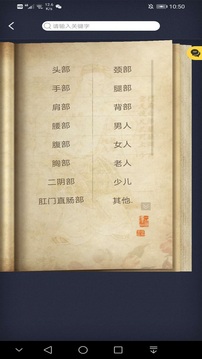 10:50
请输入关键字
头部 颈部
手部 腿部
肩部 背部
腰部 男人
腹部 女人
胸部 老人
二阴部 少儿
肛门直肠部 其他